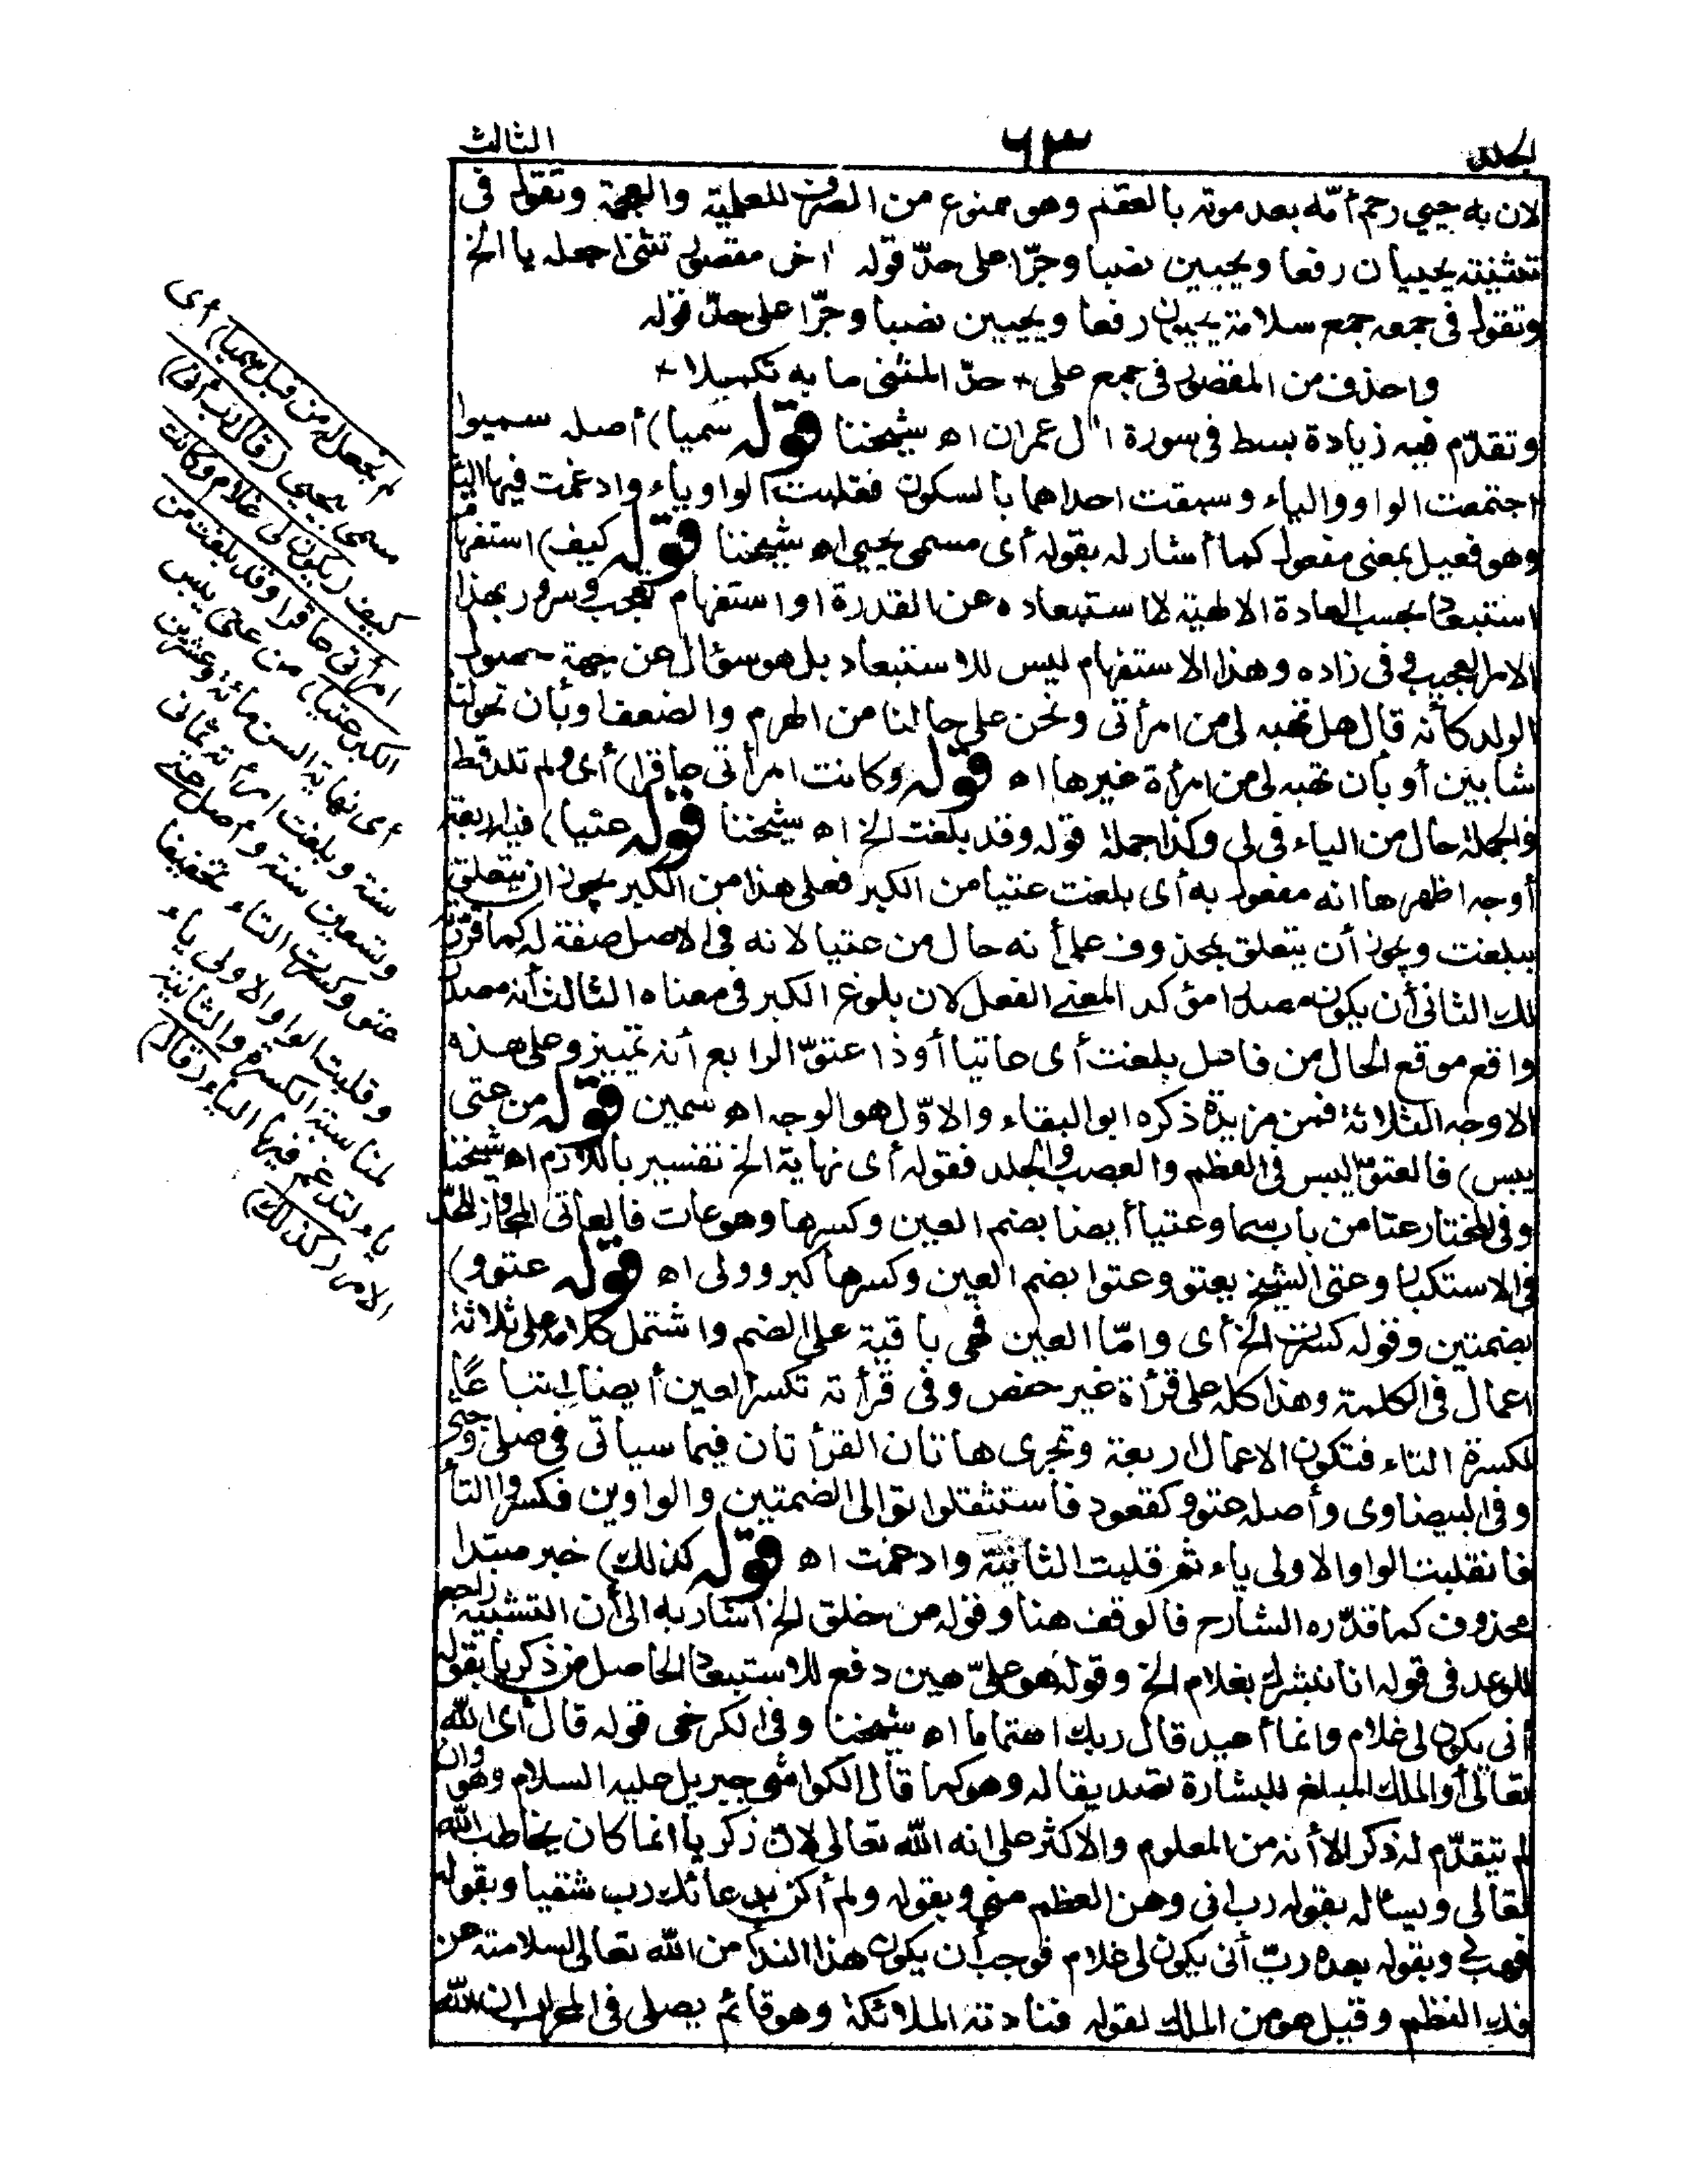 المجلد ٦٣ الثالث
لان به حيي رحم أمّه بعد موته بالعقم وهو ممنوع من الصرف للعلمية والعجمة وتقول فى
تثنيته يحييان رفعا ويحيين نصبا وجرّا على حدّ قوله آخر مقصور تثنى اجعله يا الخ
وتقول فى جمعه جمع سلامة يحيون رفعا ويحيين نصبا وجرّا على حدّ قوله
واحذف من المقصور فى جمع على * حدّ المثنى ما به تكميلا *
وتقدّم فيه زيادة بسط فى سورة آل عمران اه شيخنا قوله سميا) أصله سميوا
اجتمعت الواو والياء وسبقت احداهما بالسكون فقلبت الواو ياء وادغمت فيها الياء
وهو فعيل بمعنى مفعول كما أشار له بقوله أى مسمى بيحيى اه شيخنا قوله كيف) استفهام
استبعاد بحسب العادة الالهية لا استبعاده عن القدرة او استفهام تعجب وسرور بهذا
الامر العجيب وفى زاده وهذا الاستفهام ليس للاستبعاد بل هو سؤال عن جهة حصول
الولد كأنه قال هل تهبه لى من امرأتى ونحن على حالنا من الهرم والضعف او بأن تحولنا
شابين أو بأن تهبه لى من امرأة غيرها اه قوله وكانت امرأتى عاقرا) أى ولم تلد قط
فالجملة حال من الياء فى لى وكذا جملة قوله وقد بلغت الخ اه شيخنا قوله عتيا) فيه اربعة
أوجه اظهرها انه مفعول به أى بلغت عتيا من الكبر فعلى هذا من الكبر يجوز ان يتعلق
ببلغت ويجوز أن يتعلق بمحذوف على أنه حال من عتيا لانه فى الاصل صفة له كما قررته
لك الثانى أن يكون مصدرا مؤكد المعنى الفعل لان بلوغ الكبر فى معناه الثالث أنه مصدر
واقع موقع الحال من فاعل بلغت أى عاتيا أو ذا عتوّ الرابع أنه تمييز وعلى هذه
الاوجه الثلاثة فمن مزيدة ذكره ابو البقاء والاوّل هو الوجه اه سمين قوله من عتى
يبس) فالعتوّ اليبس فى العظم والعصب والجلد فقوله أى نهاية الخ تفسير باللازم اه شيخنا
وفى المختار عتا من باب سما وعتيا أيضا بضم العين وكسرها وهو عات فالعاتى المجاوز للحد
فى الاستكبار وعتى الشيخ يعتو وعتوا بضم العين وكسرها كبر وولى اه قوله عتوو)
بضمتين وقوله كسرت الخ أى وامّا العين فهى باقية على الضم واشتمل كلامه على ثلاثة
اعمال فى الكلمة وهذا كله على قرأة غير حفص وفى قرأته تكسر العين أيضا اتباعًا
لكسرة التاء فتكون الاعمال اربعة وتجرى هاتان القرأتان فيما سيأتى فى صلى وجثى
وفى البيضاوى وأصله عتوو كقعود فاستثقلوا توالى الضمتين والواوين فكسروا التاء
فانقلبت الواو الاولى ياء ثم قلبت الثانية وادغمت اه قوله كذلك) خبر مبتدا
محذوف كما قدّره الشارح فالوقف هنا وقوله من خلق الخ أشار به الى أن التشبيه راجع
للوعد فى قوله انا نبشرك بغلام الخ وقوله هو علىّ هين دفع للاستبعاد الحاصل من زكريا بقوله
أنى يكون لى غلام وانما أعيد قال ربك اهتماما اه شيخنا وفى الكرخى قوله قال أى الله
تعالى أو الملك المبلغ للبشارة تصديقا له وهو كما قال الكواشى جبريل عليه السلام وهو وان
لم يتقدّم له ذكر الا أنه من المعلوم والاكثر على انه الله تعالى لانّ زكريا انما كان يخاطب الله
تعالى ويسأله بقوله رب انى وهن العظم منى وبقوله ولم أكن بدعائك رب شقيا وبقوله
فهب لى وبقوله بعده ربّ أنى يكون لى غلام فوجب أن يكون هذا الندا من الله تعالى لسلامته عن
فك النظم وقيل هو من الملك لقوله فنادته الملائكة وهو قائم يصلى فى المحراب ان الله
لم نجعل له من قبل سميا) أى
مسمى بيحيى (قال رب أنى)
كيف (يكون لى غلام وكانت
امرأتى عاقرا وقد بلغت من
الكبر عتيا) من عتى يبس
أى نهاية السن مائة وعشرين
سنة وبلغت امرأته ثمانى
وتسعين سنة وأصل عتى
عتوو وكسرت التاء تخفيفا
وقلبت الواو الاولى ياء
لمناسبة الكسرة والثانية
ياء لتدغم فيها الياء (قال)
الامر (كذلك)